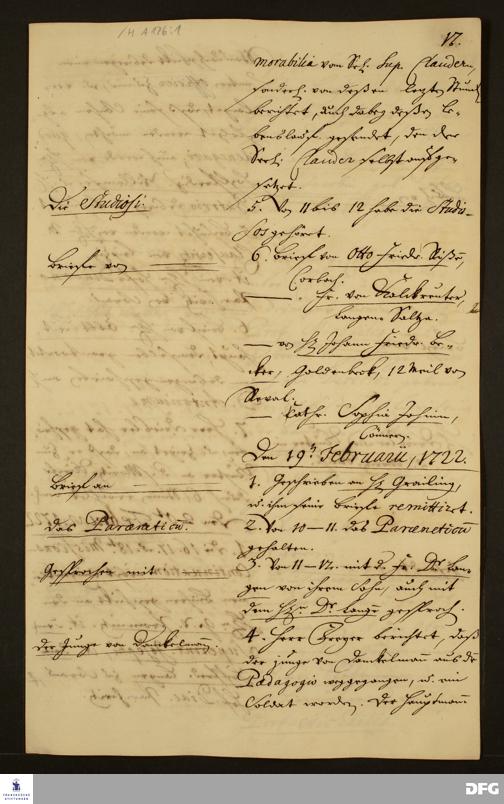 /H A 176:1
17.
morabilia vom Sel. Sup. Clauder,
sonderl. von deßen letzten Stund.
berichtet, auch dabey deßen Le-
benslauff gesendet, den der
Seel. Clauder selbst aufge-
setzet.
Die Studiosi.
5. Von 11 bis 12 habe die Studio-
sos gehöret.
Briefe von
6. Brief von Otto Friedr.
Corbach.
Fr. von Kalckreuter,
Langen Saltza.
von H. Johann Friedr. Be-
cker, Goldenbeck, 12 Meil von
Reval.
Cathr. Sophia Johnin,
Cönnern.
Den 19t. Februarii, 1722.
Brief an
1. Geschrieben an H. Grailing,
u. ihm seine Briefe remittiret.
Das Paraeneticum.
2. Von 10-11. das Paraeneticum
gehalten.
Gesprochen mit
3. Von 11-12. mit d. Fr. Dr. Lan-
gen von ihrem Sohn, auch mit
dem Hn. Dr. Lange gesproch.
Der Junge von Danckelmann.
4. Herr Freyer berichtet, daß
der junge von Danckelmann aus dem
Paedagogio weggegangen, u. ein
Soldat worden. Der Hauptmann
FRANCKESCHE STIFTUNGEN
DFG